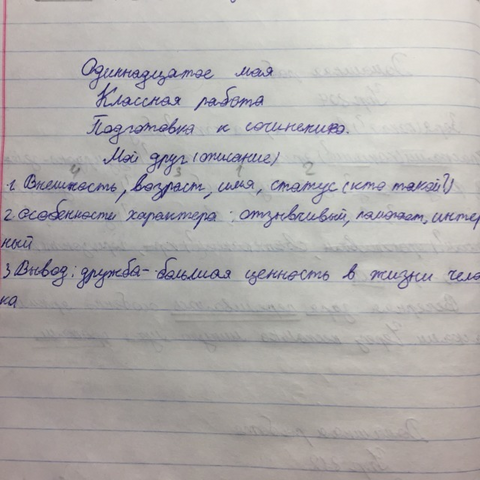 Одиннадцатое мая
Классная работа
Подготовка к сочинению.
Мой друг (описание)
4 3 1 2
1 Внешность, возраст, имя, статус (кто такой?)
2 особенности характера: отзывчивый, помогает, интер
ный
3 Вывод: дружба - большая ценность в жизни чело
ка